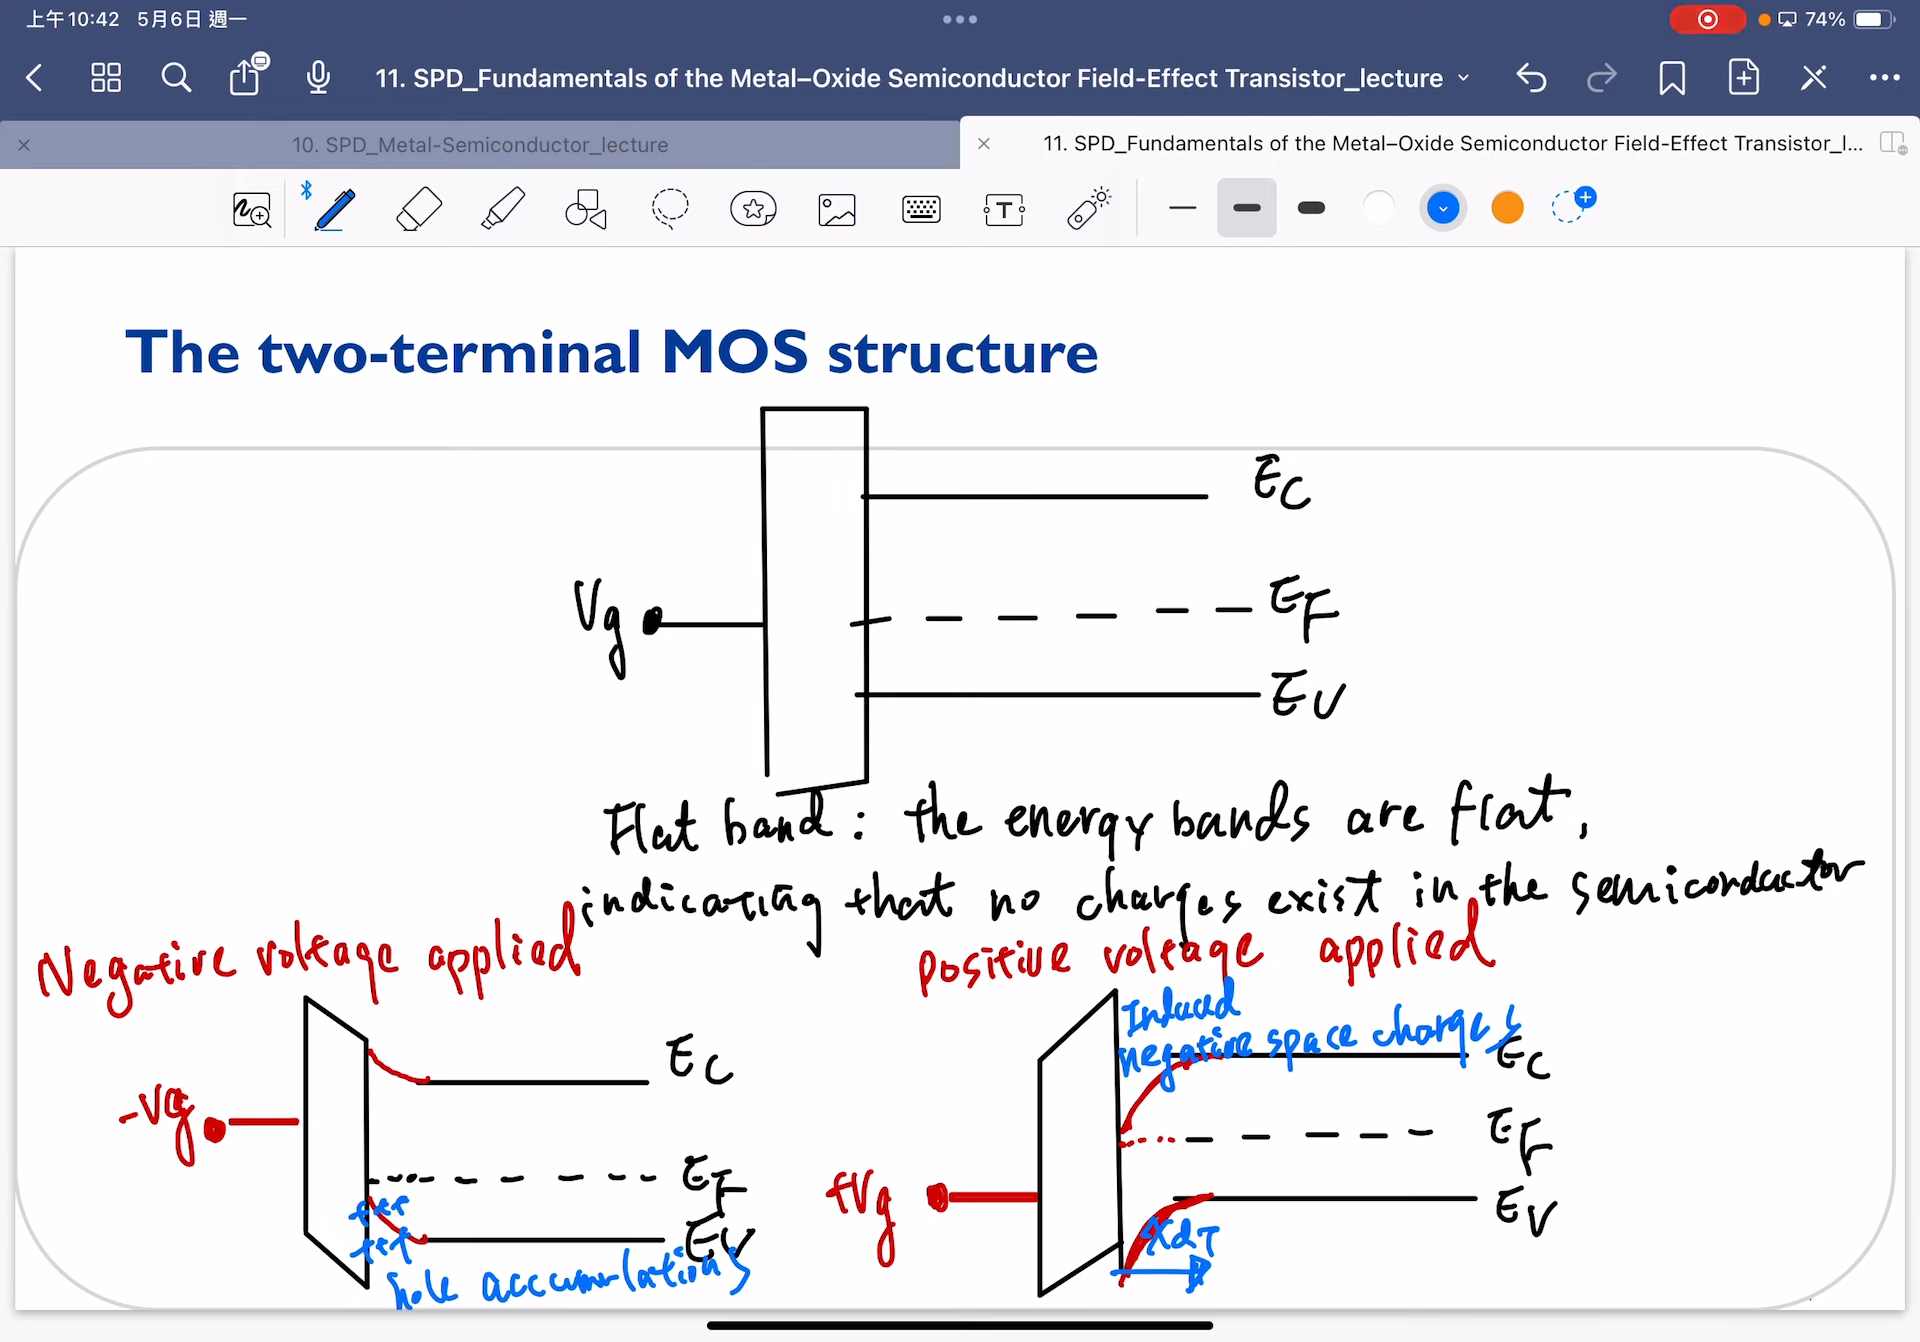 上午10:42 5月6日 週一
74%
11. SPD_Fundamentals of the Metal–Oxide Semiconductor Field-Effect Transistor_lecture
10. SPD_Metal-Semiconductor_lecture
11. SPD_Fundamentals of the Metal–Oxide Semiconductor Field-Effect Transistor_l...
The two-terminal MOS structure
EC
Vg
EF
EV
Flat band: the energy bands are flat,
indicating that no charges exist in the semiconductor
Negative voltage applied
positive voltage applied
Induced
negative space charges
EC
EC
-Vg
EF
EF
+Vg
+++
EV
EV
+++
XdT
hole accumulations